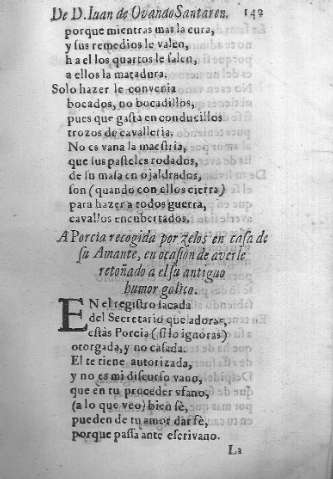 De D. Iuan de Ovando Santaren. 149
porque mientras mas la cura,
y sus remedios le valen,
h a el los quartos le salen,
a ellos la matadura.
Solo hazer le convenia
bocados, no bocadillos,
pues que gasta en conducillos
trozos de cavalleria.
No es vana la maestria,
que sus pasteles rodados,
de su masa en ojaldrados,
son (quando con ellos cierra)
para hazer a todos guerra,
cavallos encubertados.
A Porcia recogida por zelos en casa de
su Amante, en ocasion de averle
retoñado a el su antiguo
humor galico.
EN el registro sacada
del Secretario que adoras,
estàs Porcia (si lo ignoras)
otorgada, y no casada.
El te tiene autorizada,
y no es mi discurso vano,
que en tu proceder vfano,
(a lo que veo) bien sè,
pueden de tu amor dar fè,
porque passa ante escrivano.
La